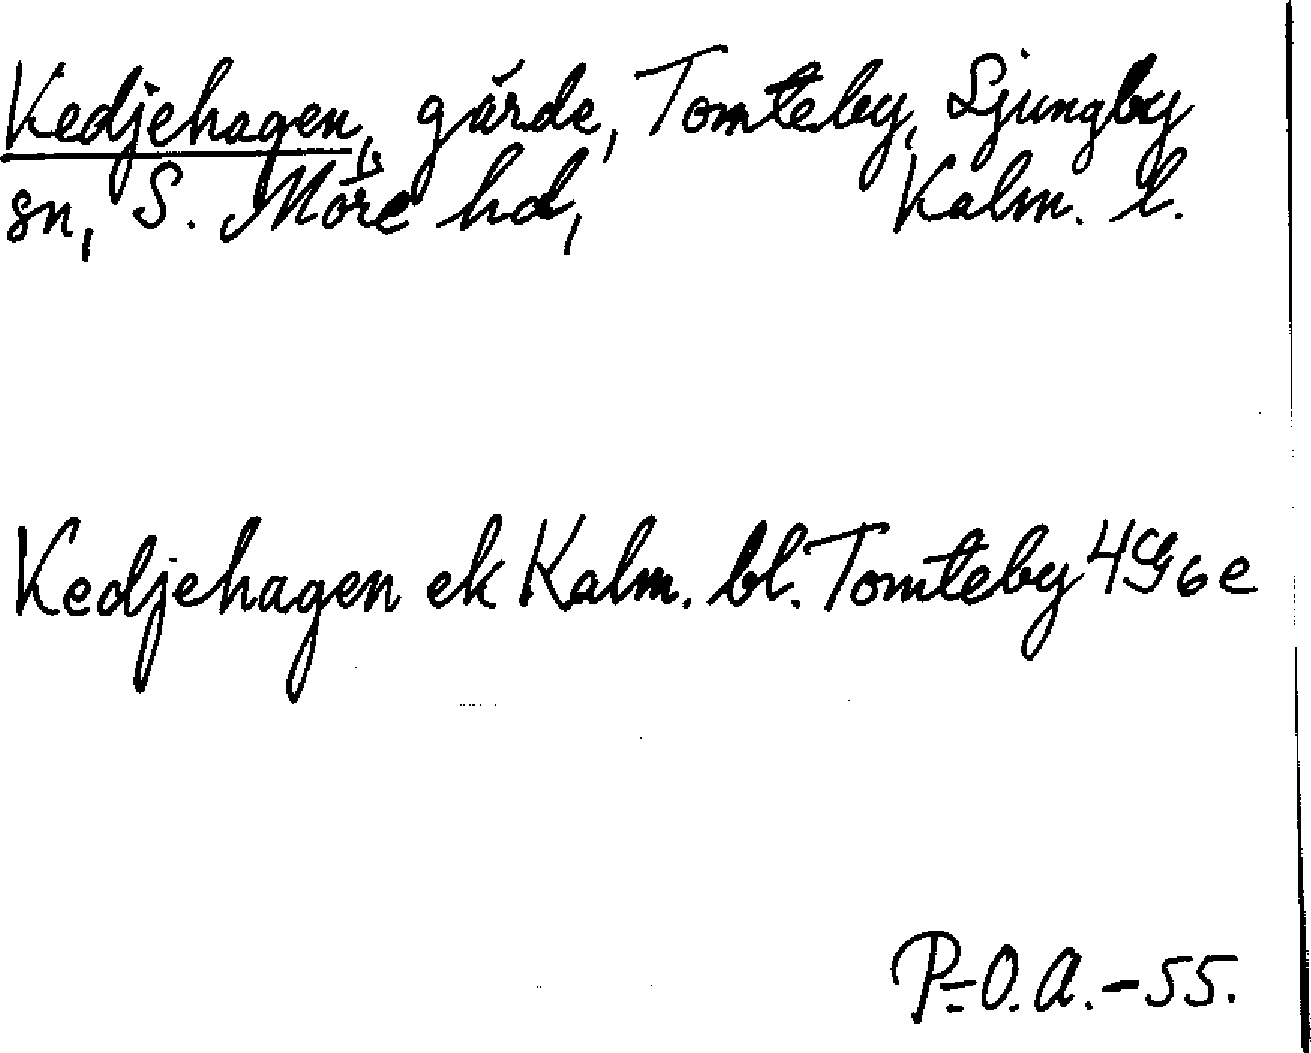 Kedjehagen, gärde, Tomteby, Ljungby
sn, S. Möre hd, Kalm. l.
Kedjehagen ek Kalm. bl. Tomteby 4G6e
P=O.A.-55.